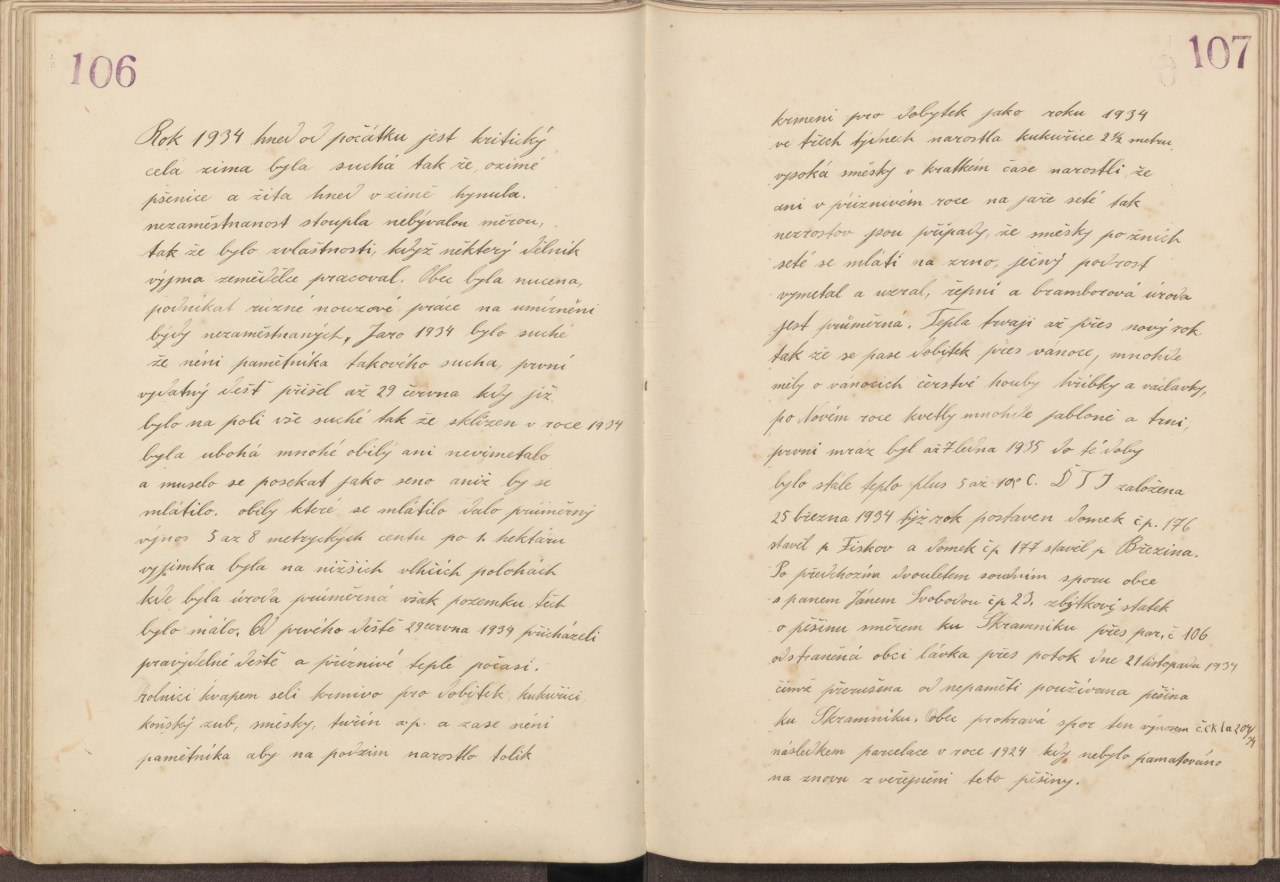 106
Rok 1934 hned od počátku jest kritický
cela zima byla suchá tak že ozimé
pšenice a žita hned v zimě hynula.
nezaměstnanost stoupla nebývalou měrou,
tak že bylo zvlaštnosti, když některý dělnik
výjma zemědělce pracoval. Obec byla nucena,
podnikat různé nouzové práce na umírnění
býdy nezaměstnaných, Jaro 1934 bylo suché
že néni pamětnika takového sucha, první
vydatný dešť přišel až 29 června kdy již
bylo na poli vše suché tak že sklizen v roce 1934
byla ubohá mnohé obilý ani nevimetalo
a muselo se posekat jako seno aniž by se
mlátilo. obilý které se mlátilo dalo průměrný
výnos 5 az 8 metryckých centu po 1. hektáru
vyjimka byla na nižšich vlhčich polohách
kde byla úroda průměrná však pozemku těch
bylo málo. Od prvého deště 29 června 1934 přicházeli
pravydelné deště a příznivé teplé počasi.
rolnici kvapem seli krmivo pro dobitek, kukuřici
koňský zub, směsky, tuřin a.p. a zase néni
pamětnika aby na podzim narostlo tolik
107
krmeni pro dobytek jako roku 1934
ve třech týdnech narostla kukuřice 2½ metru
vysoká směsky v kratkém čase narostli že
ani v příznivém roce na jaře seté tak
nezrostou jsou případy, že směsky po žních
seté se mlátí na zrno, ječný podrost
vymetal a uzral, řepní a bramborová úroda
jest průměrná. Tepla trvaji až přes nový rok
tak že se pase dobitek přes vánoce, mnohde
měly o vánocich čerstvé houby hřibky a václavky,
po Novém roce kvetly mnohde jabloně a trni,
prvni mráz byl až 7 ledna 1935 do té doby
bylo stále teplo plus 5 až 10° C. D T J založena
25 března 1934 týž rok postaven domek č p. 176
stavěl p Fiskov a domek č p 177 stavěl p. Březina.
Po předchozim dvouletem soudním sporu obce
s panem Jánem Svobodou č p 23. zbýtkový statek
o pěšinu směrem ku Skramniku přes par. č 106
odstraněná obci lávka přes potok dne 21 listopadu 1934
čimž přerušena od nepaměti použivana pěšina
ku Skramniku. Obec prohravá spor ten výnosem č. CK I a 204/34
následkem parcelace v roce 1924 kdy nebylo pamatováno
na znovu zveřejněni teto pěšiny.